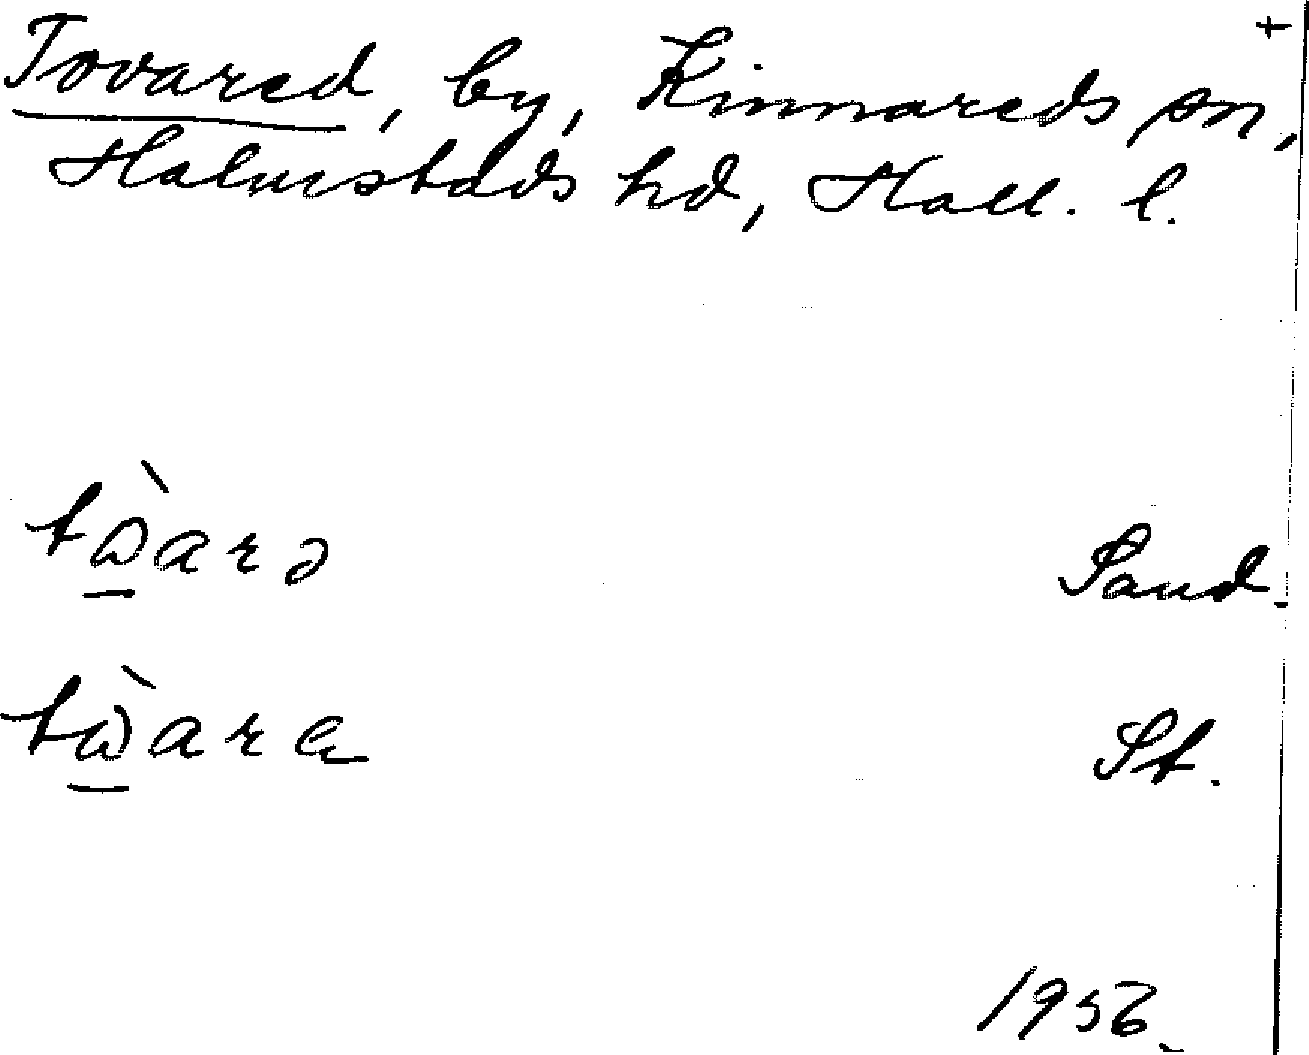 Tovared, by, Kinnareds sn,
Halmstads hd, Hall. l.
Sand.
St.
1956